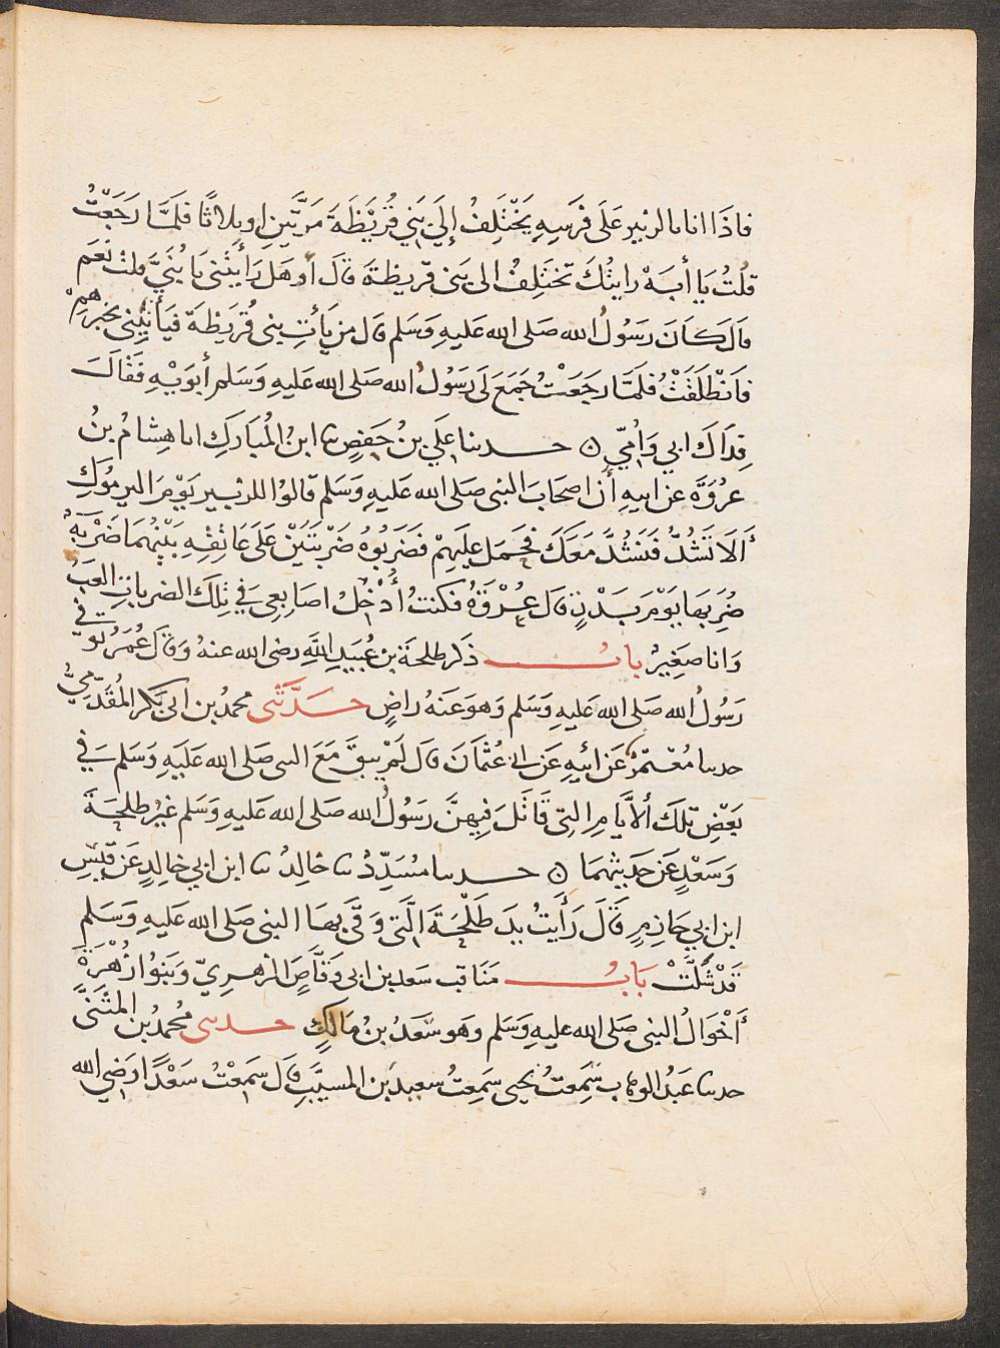 فاذا انا بالزبير عَلَى فَرَسِهِ يَخْتَلِفُ إِلَى بَنِي قُرَيْظَةَ مَرَّتَيْنِ او ثلاثًا فَلَمَّا رَجَعْتُ
قُلْتُ يَا أَبَهْ رايتُكَ تَخْتَلِفُ الى بَنى قريظةَ قَالَ أَوَهَلْ رَأَيْتَنى يَا بُنَيَّ قلتُ نَعَم
قال كَانَ رَسُولُ الله صَلى الله عَليهِ وَسَلم قال من يَأْتِ بنى قُرَيظَةَ فيَأْتِيْنِى بخبرِهِمْ
فَانْطَلَقْتُ فلمّا رجَعَتُ جَمَعَ لَى رَسُولُ الله صَلى الله عَليهِ وَسَلم أَبَوَيْهِ فَقَالَ
فِدَاكَ ابي وَأُمّي ن حدثنا عَلي بنُ حَفصٍ ثنا ابنُ المُبَارَكِ انا هِشامُ بنُ
عُروَةَ عن ابيهِ أن اصحَابَ النبى صَلى الله عَليهِ وَسَلم قالوُا للزبير يَوْمَ اليرمُوكِ
أَلَا تَشُدُّ فَنَشُدَّ مَعَكَ فحَمَل عليَهِمْ فضَرَبُوهُ ضَرْبَتَيْنَ عَلَى عَاتِقِهِ بَيْنهُمَا ضَرْبَةٌ
ضُرِبَهَا يَوْمَ بَدْرٍ قال عُرْوَةُ فكنتُ أُدْخِلُ اصَابِعِى فَي تِلكَ الضرباتِ العَبُ
وَانا صَغِيرٌ بابُ ذكر طلحةَ بن عُبَيدِ اللَّهِ رضى الله عنهُ وَقالَ عُمَرُ تُوُفّى
رَسُولُ الله صَلى الله عَليهِ وَسَلم وَهوَ عَنهُ راضٍ حَدَّثَنِى محمدُ بن ابى بَكر المُقَدَّمِيُّ
حدثنا مُعْتَمِرٌ عَن ابيهِ عَن ابى عُثمَانَ قال لَمْ يَبْقَ مَعَ النبى صَلى الله عَليَهِ وَسَلم في
بَعْضِ تلكَ ألأيَّامِ التِى قَاتَلَ فِيهِنَّ رَسُولُ الله صَلى الله عَليهِ وَسَلم غيرُ طلحَةَ
وَسَعْدٍ عَن حَدِيثِهمَا ن حدثنا مُسَدَّدٌ ثنا خالِدٌ ثنا ابن ابي خالِدٍ عَن قَيْسِ
ابن ابي حَازِمٍ قَالَ رَأَيتُ يدَ طَلحَةَ الَّتى وَقَى بِهَا النبى صَلى الله عَليهِ وَسَلم
قَدْ شَلَّتْ بَابُ مَناقب سَعدِ بن ابى وَقَّاصٍ الزهرِيّ وَبَنوُا زُهْرَةَ
أَخْوَالُ النبى صَلى الله عليهِ وَسَلم وهَو سَعَدُ بنُ مَالِكٍ حدثنى مُحمدُ بن المثَنَّى
حدثنا عَبْدُ الوهاب سَمِعتُ يحيى سَمِعتُ سعيدَ بن المسيّبِ قال سَمِعْتُ سَعْدًا رَضِي الله